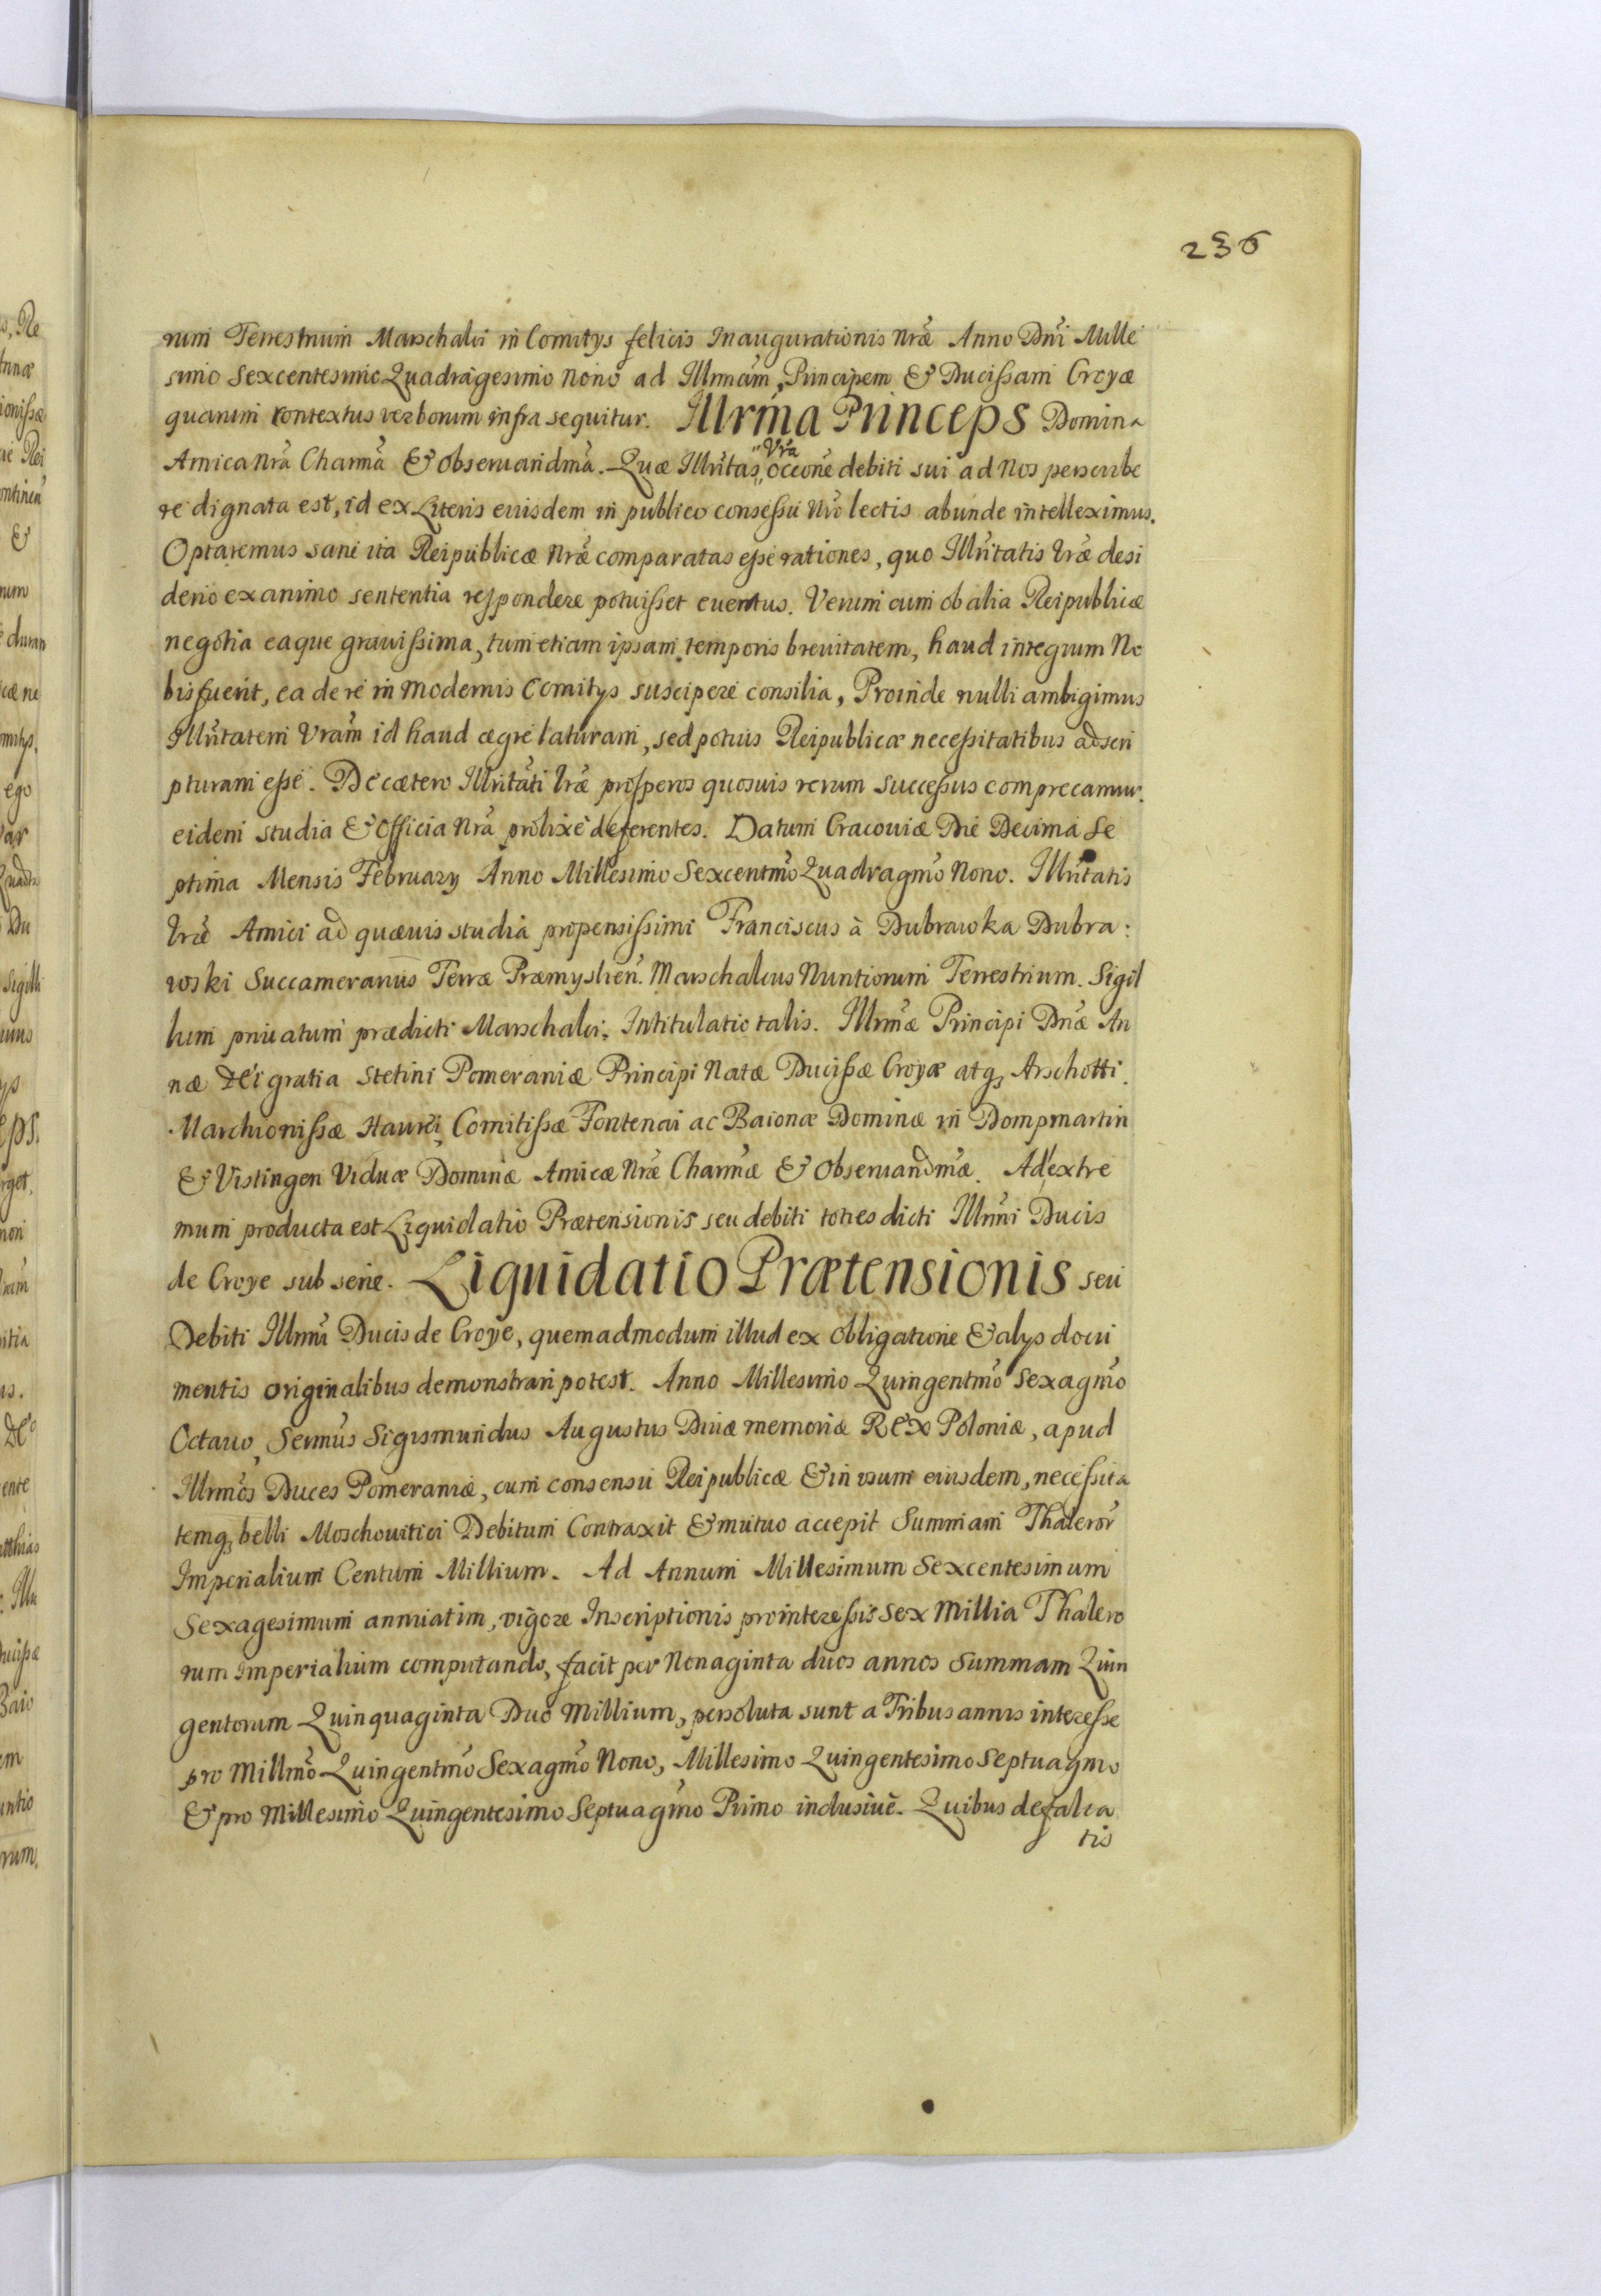 236
rum Terrestrium Marschalci in Comitys felicis Inaugurationis Nrae Anno Dni Mille
simo Sexcentesimo Quadragesimo Nono ad Illrmam, Principem & Ducissam Croyae
quarum contextus verborum infra sequitur. Illrma Princeps Domina
Amica Nra Charma & Observandma. Quae Illritas Vra occone debiti sui ad Nos perscribe
re dignata est, id ex Literis eiusdem in publico consessu Nro lectis abunde intelleximus.
Optaremus sane ita Reipublicae Nrae comparatas esse rationes, quo Illritatis Vrae desi
derio ex animo sententia respondere potuisset eventus. Verum cum ob alia Reipublicae
negotia eaque gravissima, tum etiam ipsam temporis brevitatem, haud integrum No
bis fuerit, ea de re in modernis Comitys suscipere consilia, Proinde nulli ambigimus
Illritatem Vram id haud aegre laturam, sed potius Reipublicae necessitatibus adscri
pturam esse. De caetero Illritati Vrae prosperos quosvis rerum successus comprecamur.
eidem studia & Officia Nra prolixe deferentes. Datum Cracoviae Die Decima Se
ptima Mensis February Anno Millesimo Sexcentmo Quadragmo Nono. Illritatis
Vrae Amici ad quaevis studia propensissimi Franciscus à Dubrawka Dubra:
wski Succamerarius Terrae Praemyslien. Marschalcus Nuntiorum Terrestrium. Sigil
lum privatum praedicti Marschalci. Intitulatio talis. Illrmae Principi Dnae An
nae Dei gratia Stetini Pomeraniae Principi Natae Ducissae Croyae atq Arschotti.
Marchionissae Haurei Comitissae Fontenai ac Baionae Dominae in Dompmartin
& Vistingen Viduae Dominae Amicae Nrae Charmae & Observandmae. Ad extre
mum producta est Liquidatio Praetensionis seu debiti toties dicti Illrmi Ducis
de Croye sub serie. Liquidatio Praetensionis seu
Debiti Illrmi Ducis de Croye, quemadmodum illud ex obligatione & alys docu
mentis originalibus demonstrari potest. Anno Millesimo Quingentmo Sexagmo
Octavo, Sermus Sigismundus Augustus Divae memoriae Rex Poloniae, apud
Illrmos Duces Pomeraniae, cum consensu Reipublicae & in usum eiusdem, necessita
temq belli Moschovitici Debitum Contraxit & mutuo accepit Summam Thaleror
Imperialium Centum Millium. Ad Annum Millesimum Sexcentesimum
Sexagesimum annuatim, vigore Inscriptionis pro interessis sex Millia Thalero
rum Imperialium computando, facit per Nonaginta duos annos Summam Quin
gentorum Quinquaginta Duo Millium, persoluta sunt a Tribus annis interesse
pro Millmo Quingentmo Sexagmo Nono, Millesimo Quingentesimo Septuagmo
& pro Millesimo Quingentesimo Septuagmo Primo inclusivè. Quibus defalca
tis